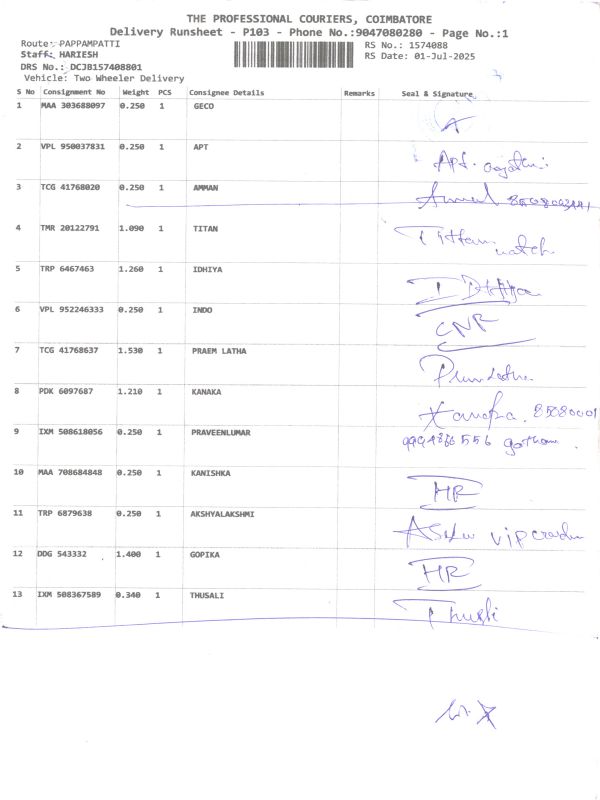 THE PROFESSIONAL COURIERS, COIMBATORE
Delivery Runsheet - P103 - Phone No.:9047080280 - Page No.:1
Route: PAPPAMPATTI RS No.: 1574088
Staff: HARIESH RS Date: 01-Jul-2025
DRS No.: DCJB157408801
Vehicle: Two Wheeler Delivery
S No Consignment No Weight PCS Consignee Details Remarks Seal & Signature
1 MAA 303688097 0.250 1 GECO
2 VPL 950037831 0.250 1 APT
3 TCG 41768020 0.250 1 AMMAN
4 TMR 20122791 1.090 1 TITAN
5 TRP 6467463 1.260 1 IDHIYA
6 VPL 952246333 0.250 1 INDO CNR
7 TCG 41768637 1.530 1 PRAEM LATHA
8 PDK 6097687 1.210 1 KANAKA Kanaka.
9 IXM 508618056 0.250 1 PRAVEENLUMAR
10 MAA 708684848 0.250 1 KANISHKA HR
11 TRP 6879638 0.250 1 AKSHYALAKSHMI
12 DDG 543332 1.400 1 GOPIKA HR
13 IXM 508367589 0.340 1 THUSALI